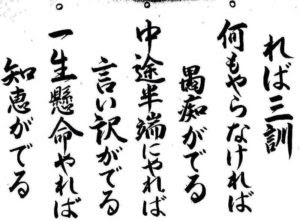 れば三訓
何もやらなければ
愚痴がでる
中途半端にやれば
言い訳がでる
一生懸命やれば
知恵がでる